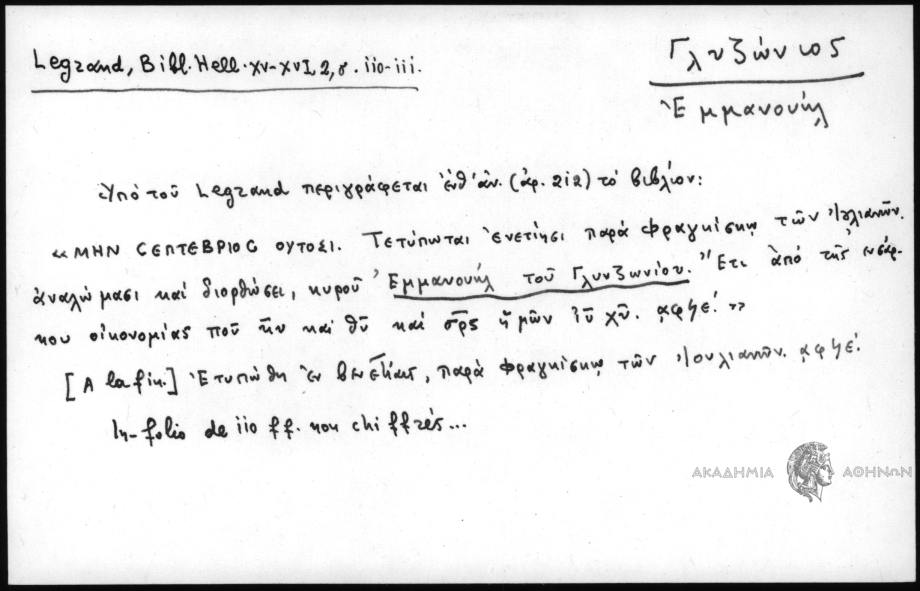 Legrand, Bibl. Hell. XV-XVI, 2, σ. 110-111.
Γλυζώνιος
Ἐμμανουήλ
Ὑπό τοῦ Legrand περιγράφεται ἐνθ' ἀν. (ἀρ. 212) τό βιβλίον:
«ΜΗΝ CΕΠΤΕΒΡΙΟC ΟΥΤΟΣΙ. Τετύπωται Ἐνετίησι παρά Φραγκίσκῳ τῶν Ἰουλιανῶν.
ἀναλώμασι καί διορθώσει, κυροῦ Ἐμμανουήλ τοῦ Γλυνζωνίου. Ἔτει ἀπό τῆς ἐνσάρ-
κου οἰκονομίας τοῦ κ̅υ̅ καί θ̅υ̅ καί σ̅ρ̅ς̅ ἡμῶν ἰ̅υ̅ χ̅υ̅. ͵αφϟε΄.»
[A la fin.] Ἐτυπώθη ἐν Βενετίαις, παρά Φραγκίσκῳ τῶν Ἰουλιανῶν. ͵αφϟε΄.
In-folio de 110 ff. non chiffrés...
ΑΚΑΔΗΜΙΑ ΑΘΗΝΩΝ